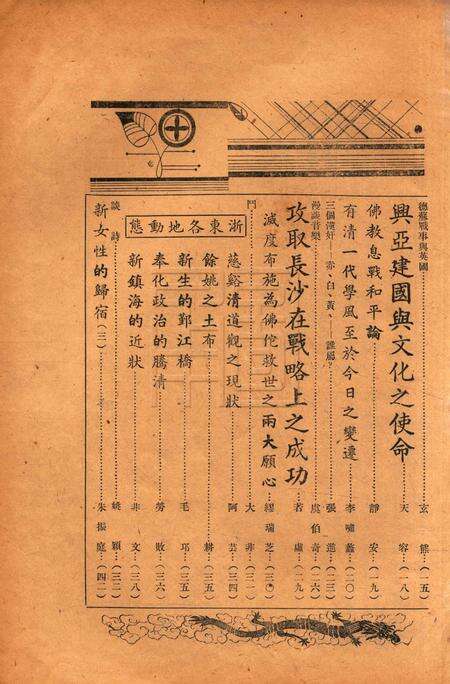 德蘇戰事與英國……玄熊(一五)
興亞建國與文化之使命……天容(一八)
佛教息戰和平論……靜安(一九)
有清一代學風至於今日之變遷……李嘯盦(二〇)
三個漢奸——赤、白、黃、——誰屬?……張遜(二三)
漫談音樂……虞伯奇(二六)
攻取長沙在戰略上之成功……若虛(二九)
滅度布施為佛佗救世之兩大願心……繆瑞芝(三〇)
門……大非(三二)
浙東各地動態
慈谿清道觀之現狀……阿芸(三四)
餘姚之土布……耕(三五)
新生的鄞江橋……毛邛(三五)
奉化政治的騰清……勞敗(三六)
新鎮海的近狀……非文(三八)
談詩……姚穎(三二)
新女性的歸宿(三)……朱振庭(四二)